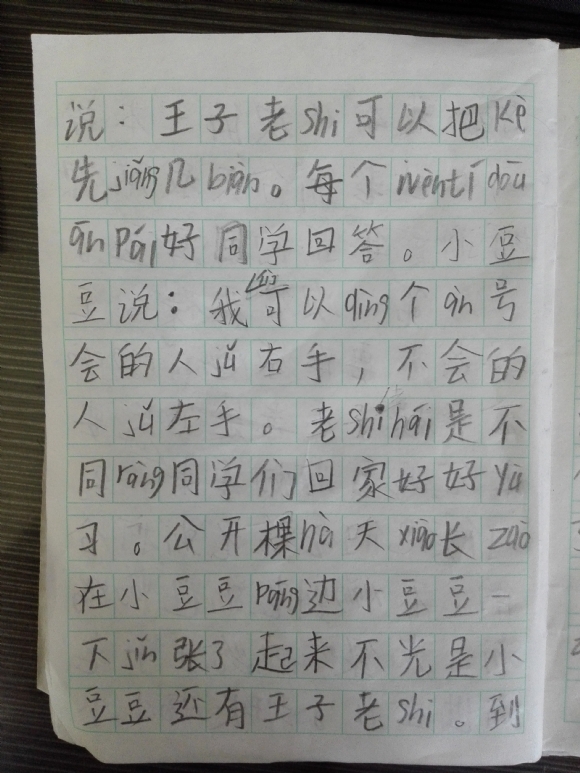 说：王子老shi可以把Kè
先jiǎng几biàn。每个wèntí dōu
ān Pái好同学回答。小豆
豆说：我们可以dìng个àn号
会的人jǔ右手，不会的
人jǔ左手。老shi hái是不
同ràng同学们回家好好yù
习。公开棵nà天xiào长zuò
在小豆豆páng边小豆豆一
下jǐn张了起来不光是小
豆豆还有王子老shi。到